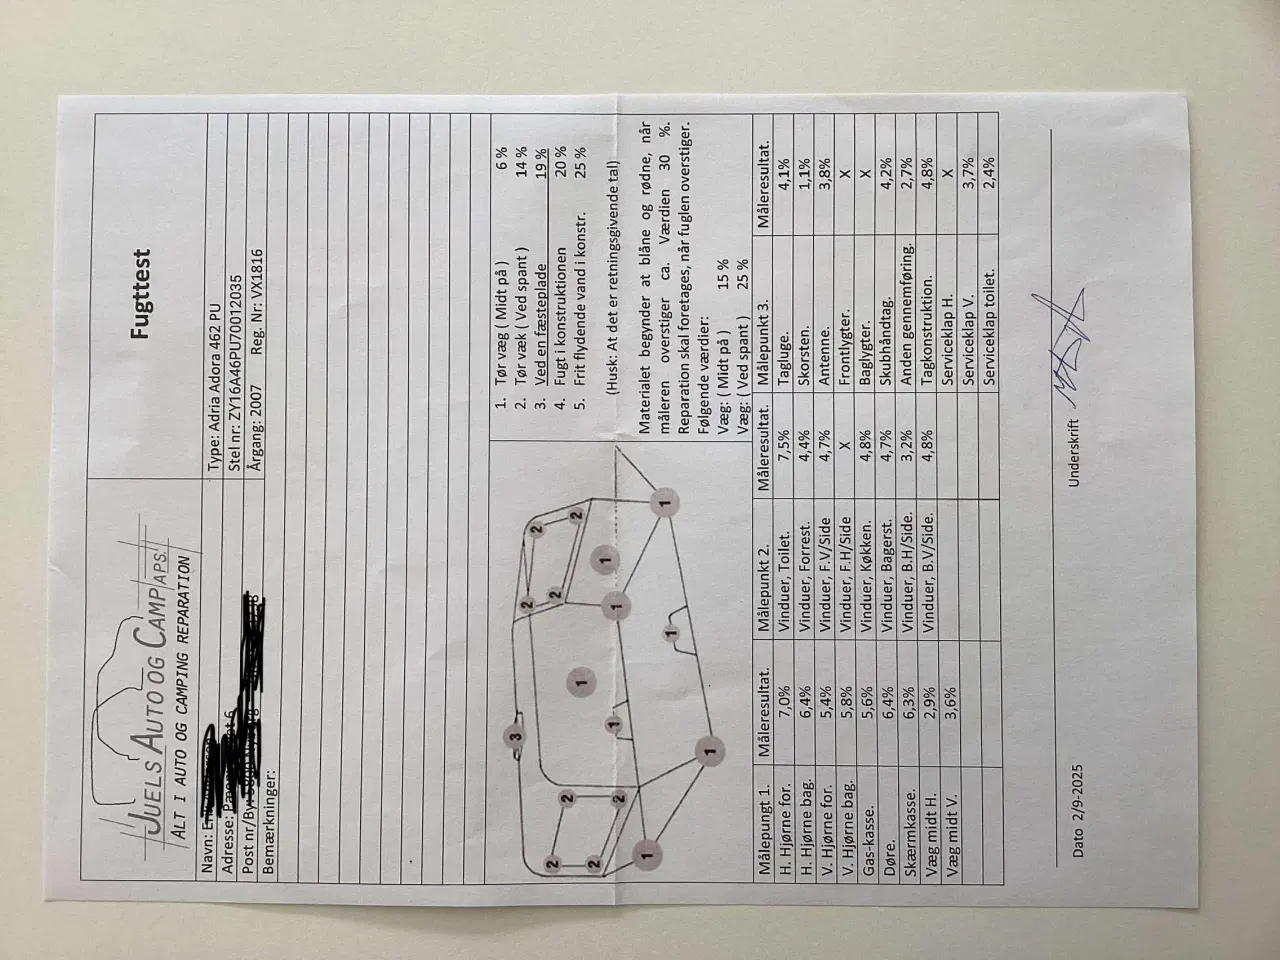 JUELS AUTO OG CAMP APS.
ALT I AUTO OG CAMPING REPARATION
Fugttest
Navn:
Adresse:
Post nr/By:
Bemærkninger:
Type: Adria Adora 462 PU
Stel nr: ZY16A46PU70012035
Årgang: 2007 Reg. Nr: VX1816
1. Tør væg ( Midt på ) 6 %
2. Tør væk ( Ved spant ) 14 %
3. Ved en fæsteplade 19 %
4. Fugt i konstruktionen 20 %
5. Frit flydende vand i konstr. 25 %
(Husk: At det er retningsgivende tal)
Materialet begynder at blåne og rødne, når
måleren overstiger ca. Værdien 30 %.
Reparation skal foretages, når fuglen overstiger.
Følgende værdier:
Væg: ( Midt på ) 15 %
Væg: ( Ved spant ) 25 %
3
2
2
2
2
2
2
2
2
1
1
1
1
1
1
1
1
Målepungt 1. Måleresultat. Målepunkt 2. Måleresultat. Målepunkt 3. Måleresultat.
H. Hjørne for. 7,0% Vinduer, Toilet. 7,5% Tagluge. 4,1%
H. Hjørne bag. 6,4% Vinduer, Forrest. 4,4% Skorsten. 1,1%
V. Hjørne for. 5,4% Vinduer, F.V/Side 4,7% Antenne. 3,8%
V. Hjørne bag. 5,8% Vinduer, F.H/Side X Frontlygter. X
Gas-kasse. 5,6% Vinduer, Køkken. 4,8% Baglygter. X
Døre. 6,4% Vinduer, Bagerst. 4,7% Skubhåndtag. 4,2%
Skærmkasse. 6,3% Vinduer, B.H/Side. 3,2% Anden gennemføring. 2,7%
Væg midt H. 2,9% Vinduer, B.V/Side. 4,8% Tagkonstruktion. 4,8%
Væg midt V. 3,6% Serviceklap H. X
Serviceklap V. 3,7%
Serviceklap toilet. 2,4%
Dato 2/9-2025 Underskrift